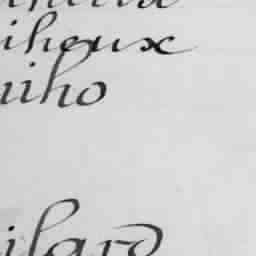 iheux
uiho
ilard